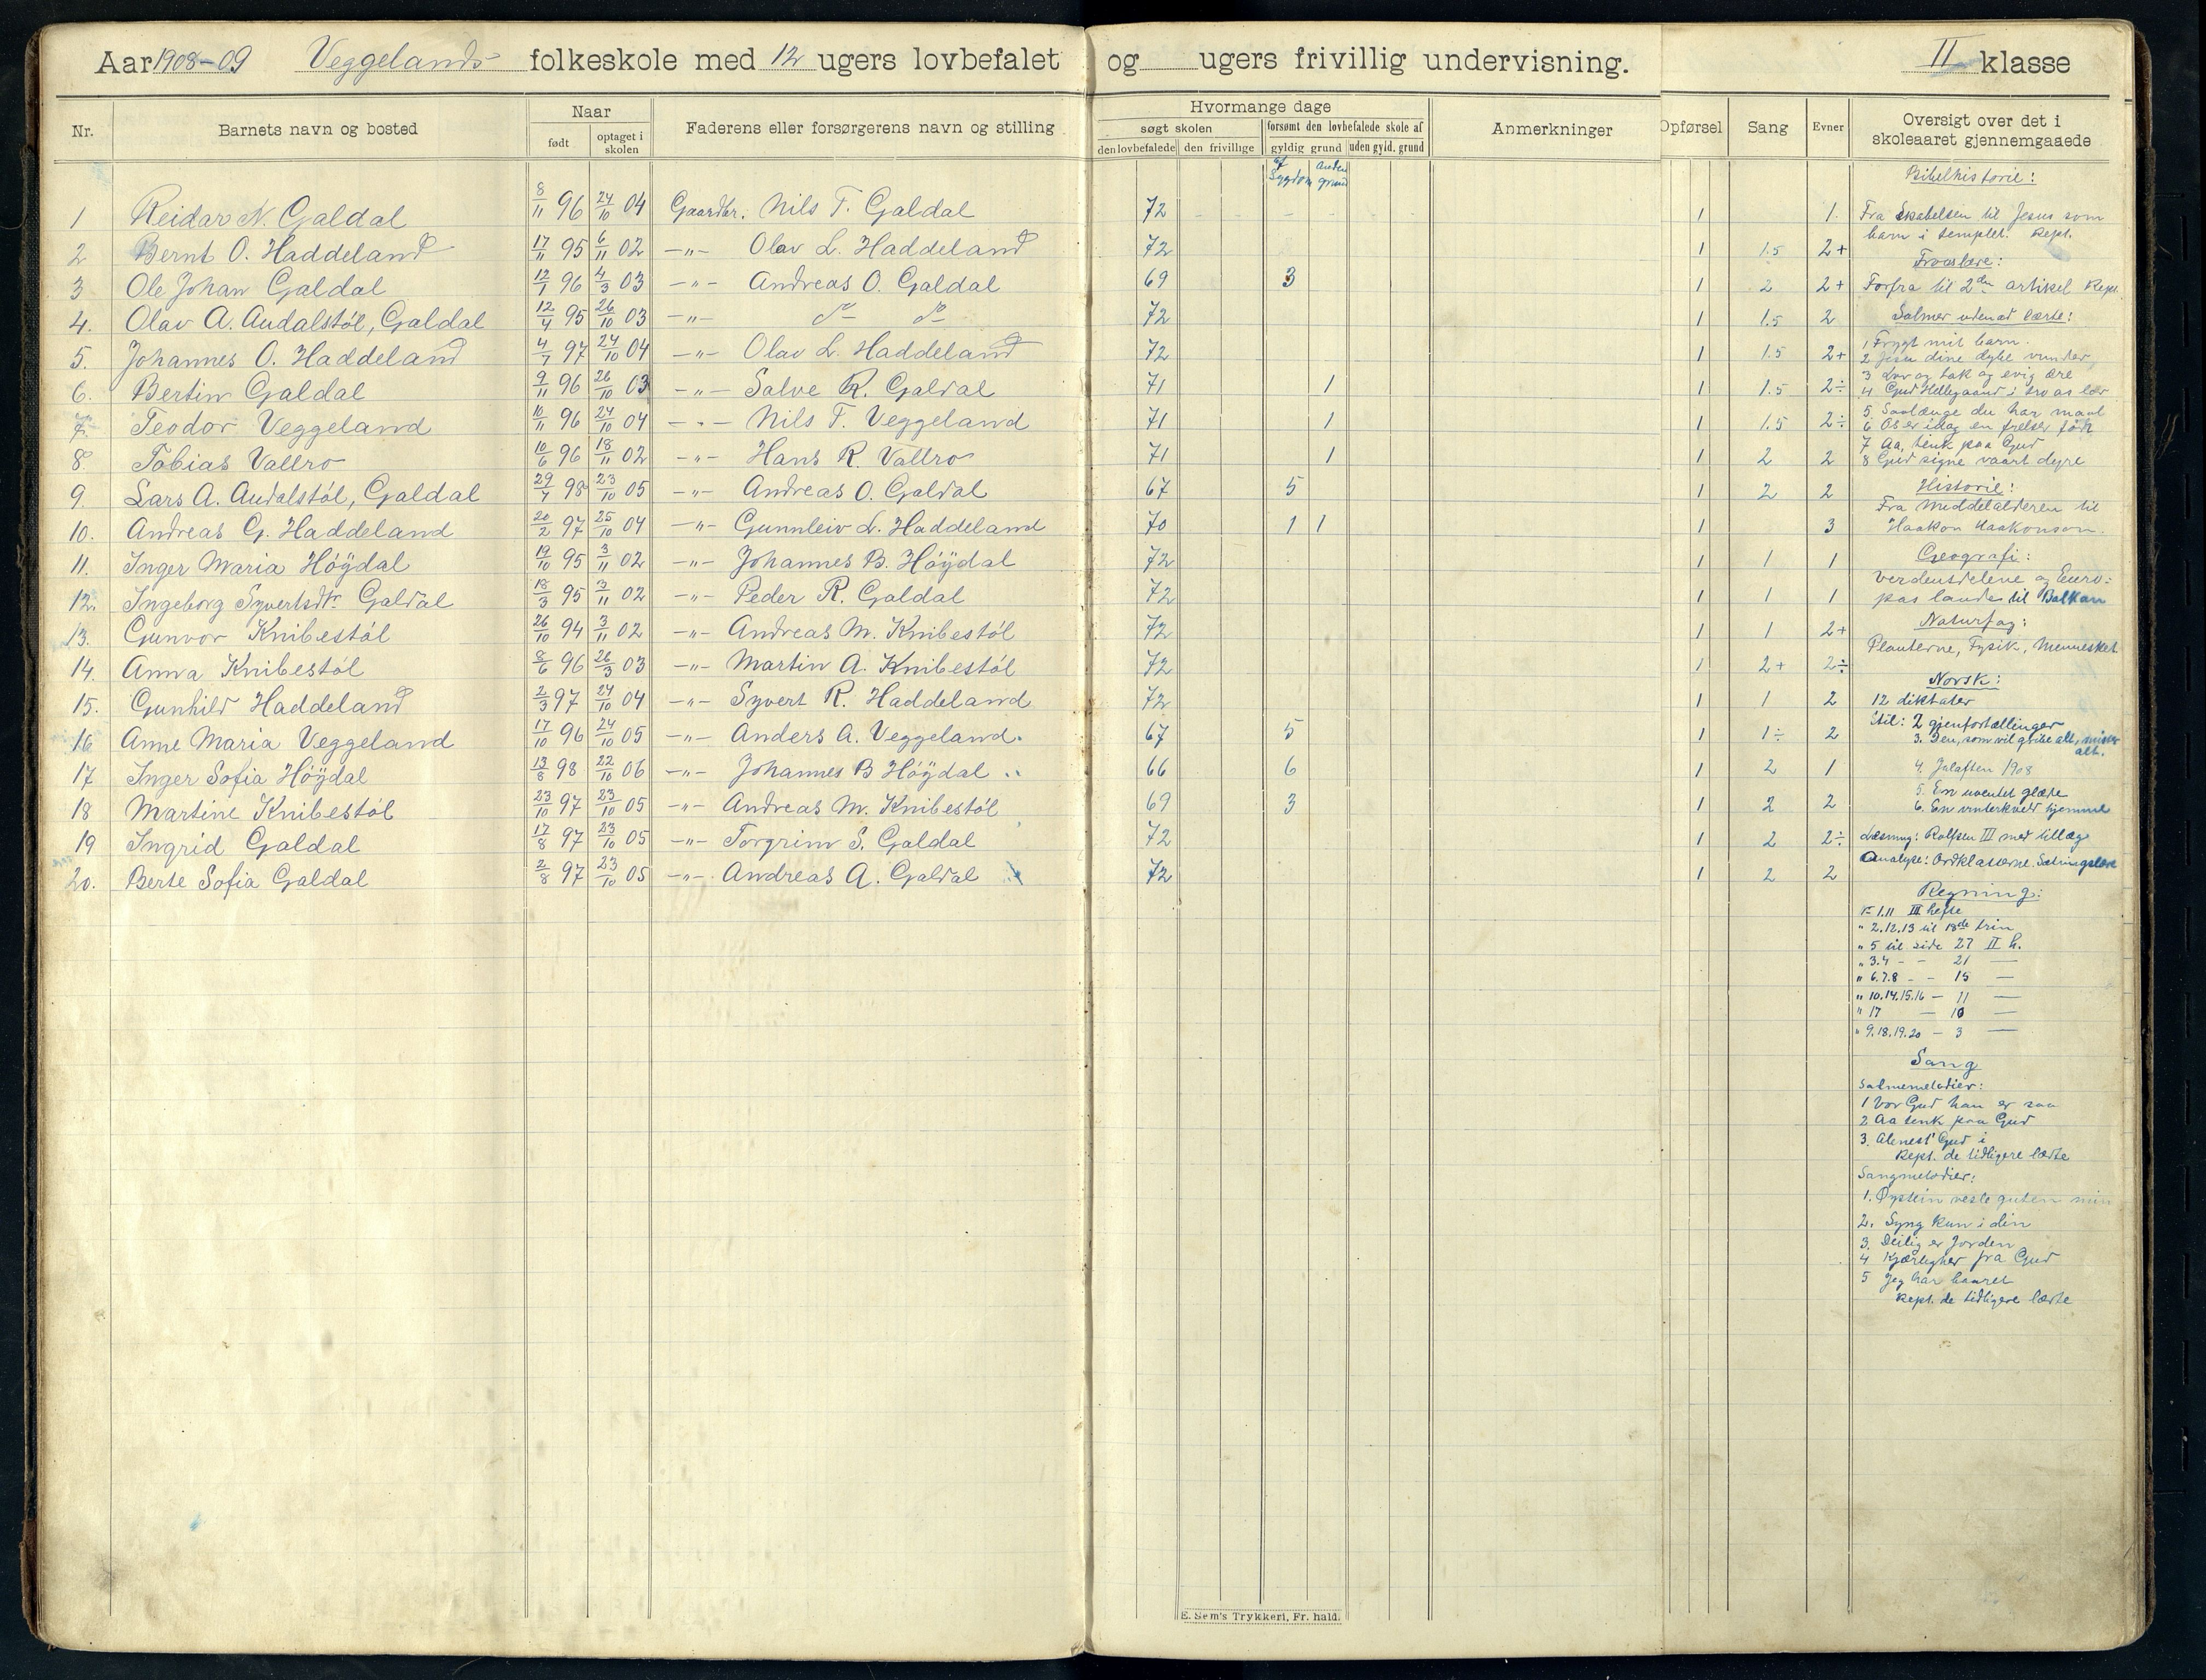 Aar 1908-09 Veggelands folkeskole med 12 ugers lovbefalet og ugers frivillig undervisning. II klasse
Nr. Barnets navn og bosted Naar født optaget i skolen Faderens eller forsørgerens navn og stilling Hvormange dage søgt skolen den lovbefalede den frivillige forsømt den lovbefalede skole af gyldig grund uden gyld. grund Anmerkninger Opførsel Sang Evner Oversigt over det i skoleaaret gjennemgaaede
af Sygdom anden grund
1 Reidar N. Galdal 8/11 96 24/10 04 Gaardbr. Nils T. Galdal 72 - - - - 1 1.
2 Bernt O. Haddeland 17/11 95 6/11 02 -"- Olav L. Haddeland 72 1 1.5 2+
3 Ole Johan Galdal 12/1 96 4/3 03 -"- Andreas O. Galdal 69 3 1 2 2+
4. Olav A. Audalstöl, Galdal 12/4 95 26/10 03 -"- do do 72 1 1.5 2
5. Johannes O. Haddeland 4/7 97 24/10 04 -"- Olav L. Haddeland 72 1 1.5 2+
6. Bertin Galdal 9/11 96 26/10 03 -"- Salve R. Galdal 71 1 1 1.5 2÷
7. Teodor Veggeland 10/11 96 24/10 04 -"- Nils T. Veggeland 71 1 1 1.5 2÷
8. Tobias Vallro 10/6 96 18/11 02 -"- Hans R. Vallro 71 1 1 2 2
9. Lars A. Audalstöl, Galdal 29/7 98 23/10 05 -"- Andreas O. Galdal 67 5 1 2 2
10. Andreas G. Haddeland 20/2 97 25/10 04 -"- Gunnleiv L. Haddeland 70 1 1 1 3
11. Inger Maria Höÿdal 19/10 95 3/11 02 -"- Johannes B. Höÿdal 72 1 1 1
12. Ingeborg Syvertsdtr. Galdal 18/3 95 3/11 02 -"- Peder R. Galdal 72 1 1 1
13. Gunvor Knibestöl 26/10 94 3/11 02 -"- Andreas M. Knibestöl 72 1 1 2+
14. Anna Knibestöl 8/6 96 26/3 03 -"- Martin A. Knibestöl 72 1 2+ 2÷
15. Gunhild Haddeland 2/3 97 24/10 04 -"- Syvert R. Haddeland 72 1 1 2
16 Anne Maria Veggeland 17/10 96 24/10 05 -"- Anders A. Veggeland. 67 5 1 1÷ 2
17 Inger Sofia Höÿdal 13/8 98 22/10 06 -"- Johannes B Höÿdal 66 6 1 2 1
18 Martine Knibestöl 23/10 97 23/10 05 -"- Andreas M. Knibestöl 69 3 1 2 2
19 Ingrid Galdal 17/8 97 23/10 05 -"- Torgrim S. Galdal 72 1 2 2÷
20. Berte Sofia Galdal 2/8 97 23/10 05 -"- Andreas A. Galdal 72 1 2 2
Bibelhistorie:
Fra Skabelsen til Jesus som
barn i templet. Rept.
Troslære:
Forfra til 2den artikel Rept.
Salmer udenad lærte:
1 Frygt mit barn.
2 Jesu dine dybe vunder
3 Lov og tak og evig ære
4 Gud Helligaand i tro os lær
5. Saalænge du har maal
6 Os er idag en frelser født
7 Aa, tenk paa Gud
8 Gud signe vaart dyre
Historie:
Fra Middelalderen til
Haakon Haakonson.
Geografi:
Verdensdelene og Euro-
pas lande til Balkan
Naturfag:
Planterne, Fysik, Mennesket
Norsk:
12 diktater
Stil: 2 gjenfortællinger
3. Den, som vil gribe alt, mister
alt.
4. Julaften 1908
5. En uventet glæde
6. En vinterkveld hjemme
Læsning: Rolfsen III med tillæg
Analyse: Ordklasserne. Setningslære
Regning:
Nr 1.11 III hefte
" 2.12.13 til 18de trin
" 5 til side 27 II h.
" 3.4 - - 21 —
" 6.7.8 - - 15 —
" 10.14.15.16 — 11 —
" 17 — 10 —
" 9.18.19.20 — 3 —
Sang
Salmemelodier:
1 Vor Gud han er saa
2 Aa tenk paa Gud
3. Aleneste Gud i
Rept. de tidligere lærte
Sangmelodier:
1. Øystein vesle guten min
2. Syng kun i din
3. Deilig er Jorden
4 Kjærlighet fra Gud
5 Jeg har baaret
Rept. de tidligere lærte
E. Sem's Trykkeri, Fr. hald.